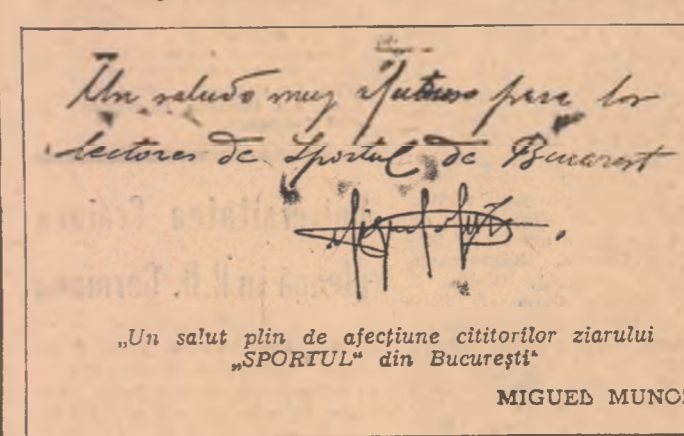 Un saludo muy afectuoso para los
lectores de Sportul de Bucarest
„Un salut plin de afecțiune cititorilor ziarului
„SPORTUL“ din București“
MIGUEL MUNOZ